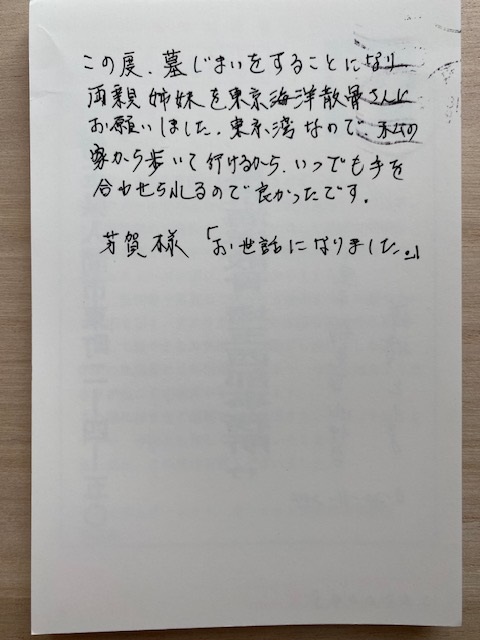 この度、墓じまいをすることになり
両親姉妹を東京海洋散骨さんに
お願いしました。東京湾なので、私の
家から歩いて行けるから、いつでも手を
合わせられるので良かったです。
芳賀様「お世話になりました。」